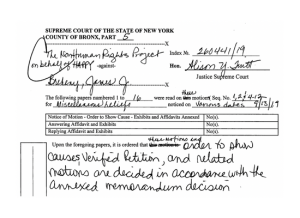 SUPREME COURT OF THE STATE OF NEW YORK
COUNTY OF BRONX, PART 5
X
The Nonhuman Rights Project
on behalf of HAPPY -against-
Index No. 260441/19
Hon. Alison Y. Tuitt
Justice Supreme Court
Breheny, James J.
X
The following papers numbered 1 to 16 were read on these motions (Seq. No. 1, 2, 4-12
for Miscellaneous Reliefs noticed on Various dates 9/13/19
Notice of Motion - Order to Show Cause - Exhibits and Affidavits Annexed No(s).
Answering Affidavit and Exhibits No(s).
Replying Affidavit and Exhibits No(s).
these motions and
Upon the foregoing papers, it is ordered that this motion is order to show
causes, Verified Petition, and related
motions are decided in accordance with the
annexed memorandum decision.